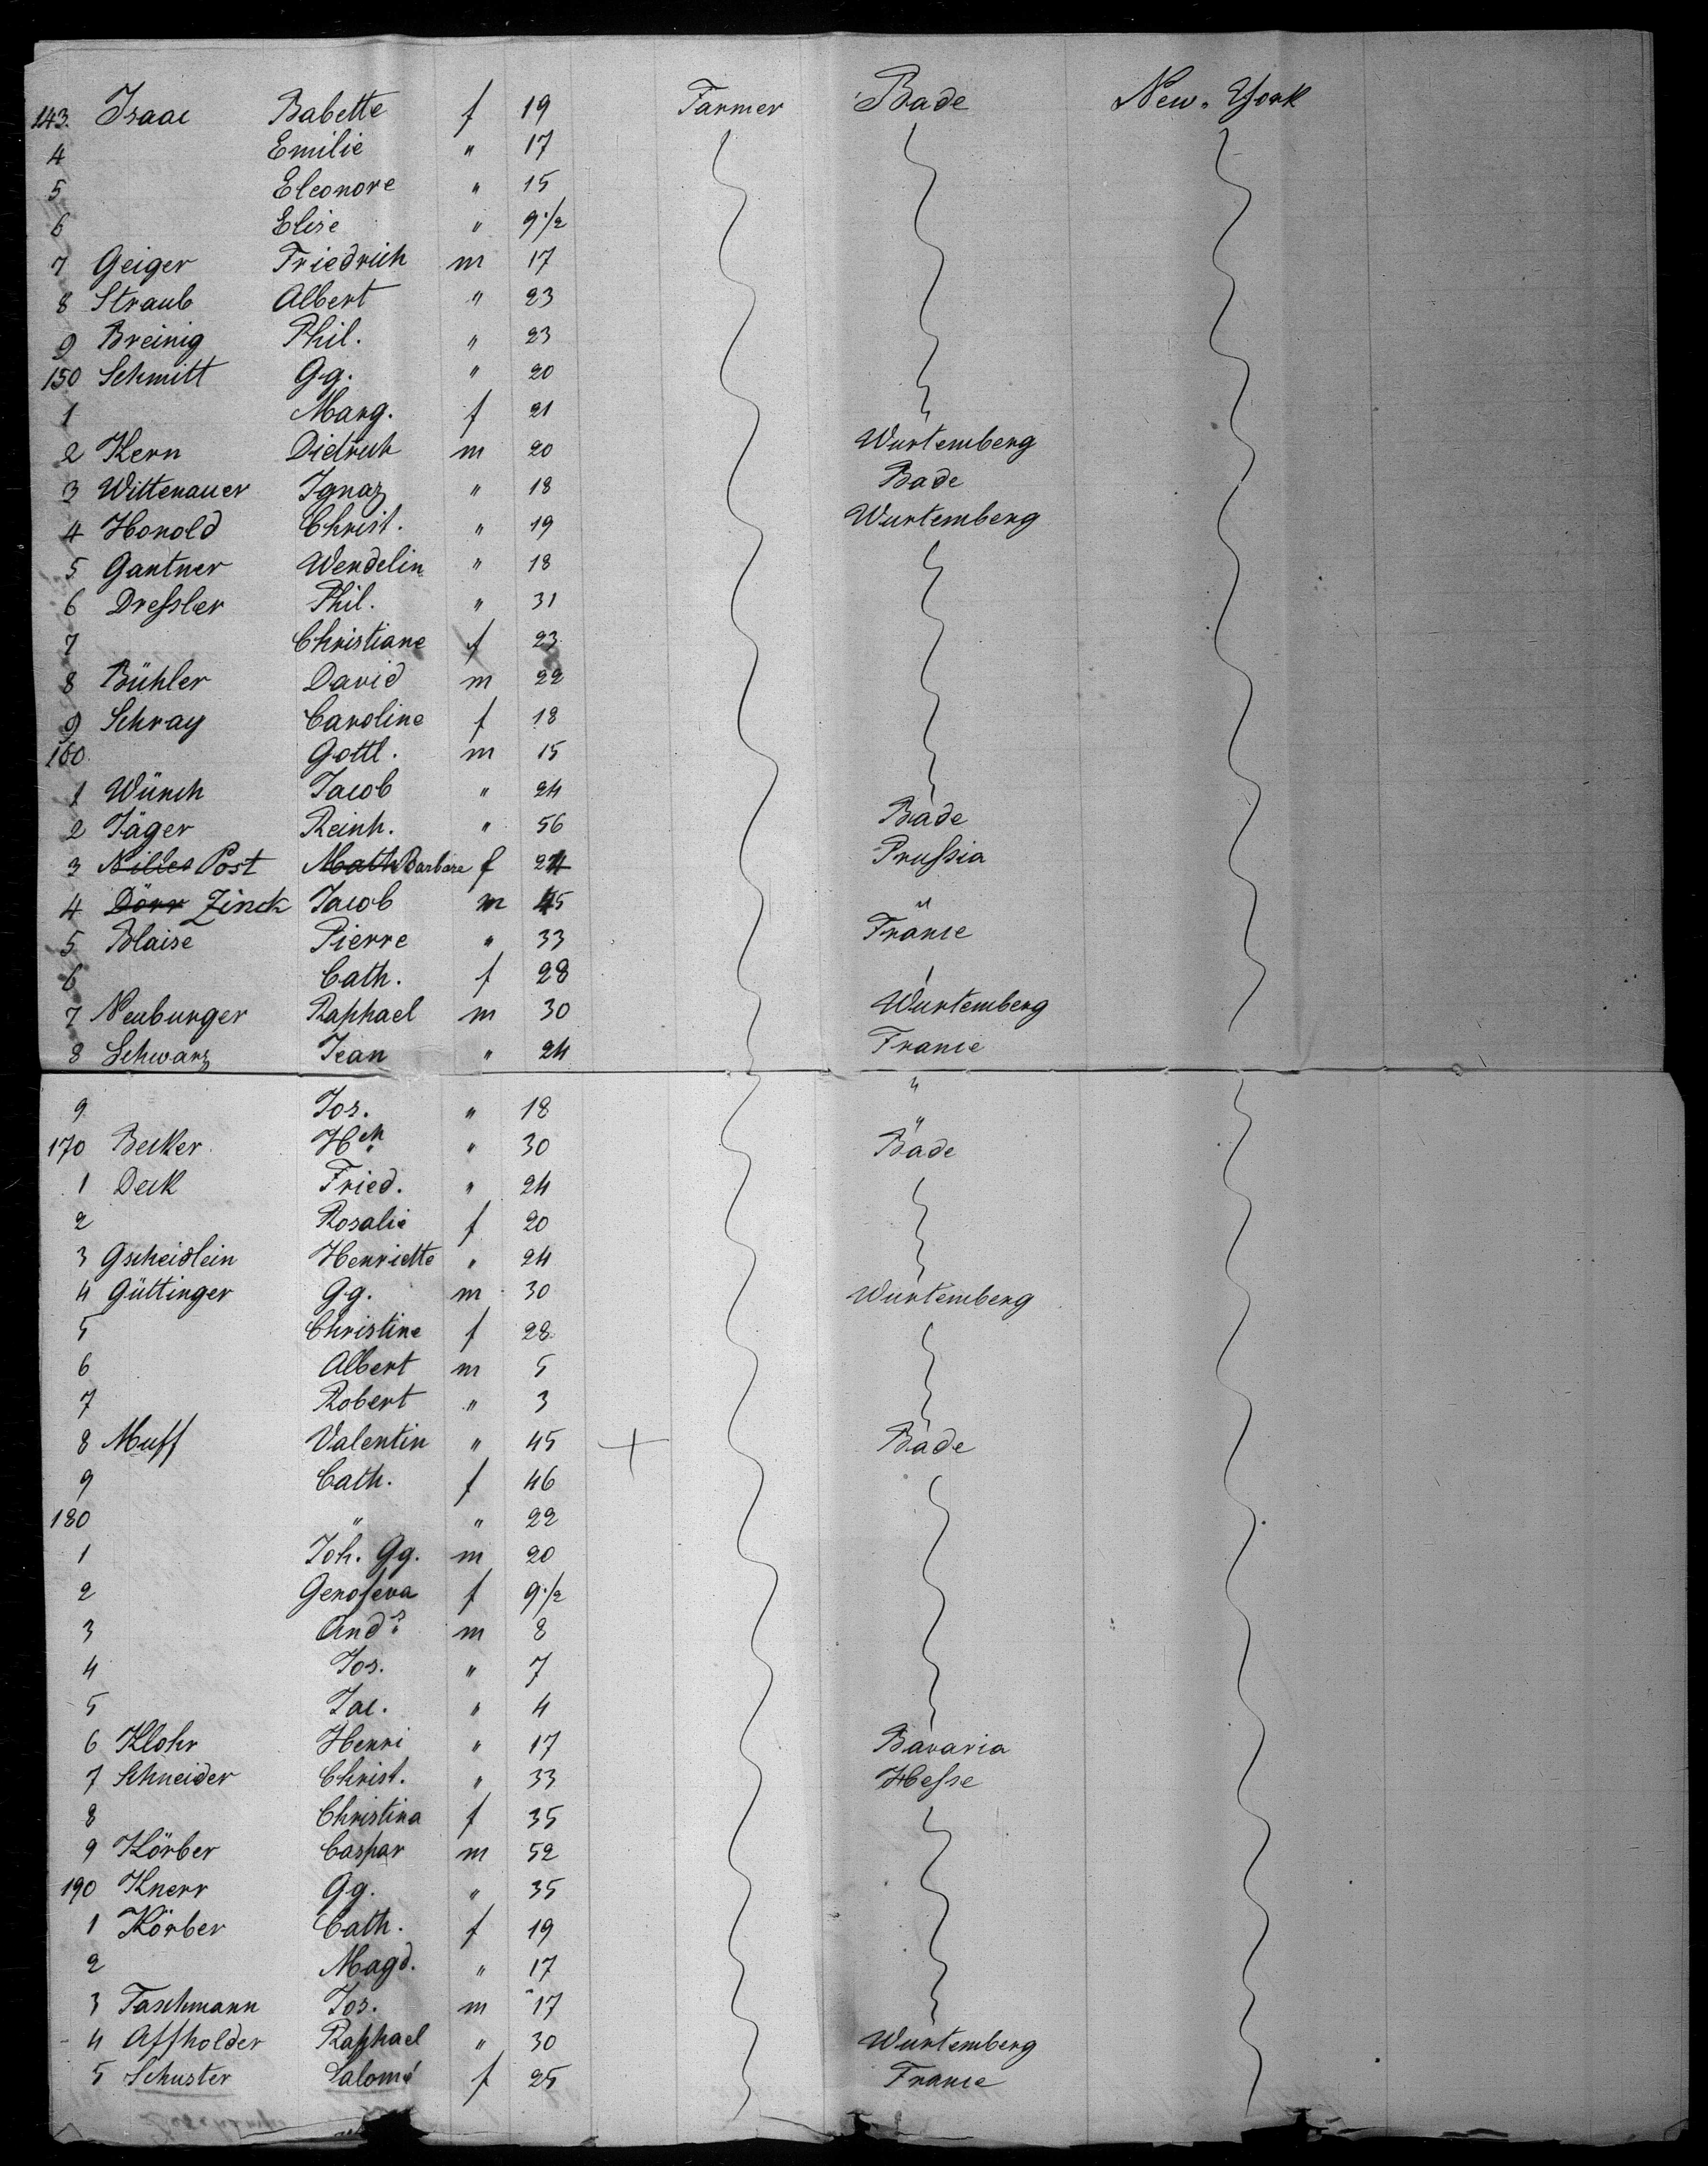 143. Isaac Babette f 19 Farmer Bade New-York
4 Emilie " 17
5 Eleonore " 15
6 Elise " 9 1/2
7 Geiger Friedrich m 17
8 Straub Albert " 23
9 Breinig Phil. " 23
150 Schmitt Gg. " 20
1 Marg. f 21
2 Kern Dietrich m 20 Wurtemberg
3 Wittenauer Ignaz " 18 Bade
4 Honold Christ. " 19 Wurtemberg
5 Gantner Wendelin " 18
6 Dreſsler Phil. " 31
7 Christiane f 23
8 Bühler David m 22
9 Schray Caroline f 18
160. Gottl. m 15
1 Wünch Jacob " 24
2 Jäger Reinh. " 56 Bade
3 Nilles Post Math Barbara f 24 Pruſsia
4 Dörr Zinck Jacob m 45 "
5 Blaise Pierre " 33 France
6 Cath. f 28 "
7 Neuburger Raphael m 30 Wurtemberg
8 Schwarz Jean " 24 France
9 Jos. " 18 "
170 Becker Hch. " 30 Bade
1 Deck Fried. " 24
2 Rosalie f 20
3 Gscheidlein Henriette " 24
4 Güttinger Gg. m 30 Wurtemberg
5 Christine f 28
6 Albert m 5
7 Robert " 3
8 Muff Valentin " 45 + Bade
9 Cath. f 46
180 " " 22
1 Joh. Gg. m 20
2 Genofeva f 9 1/2
3 Ands. m 8
4 Jos. " 7
5 Jac. " 4
6 Klohr Henri " 17 Bavaria
7 Schneider Christ. " 33 Heſse
8 Christina f 35
9 Körber Caspar m 52
190 Knerr Gg. " 35
1 Körber Cath. f 19
2 Magd. " 17
3 Taschmann Jos. m 17
4 Affholder Raphael " 30 Wurtemberg
5 Schuster Salomé f 25 France